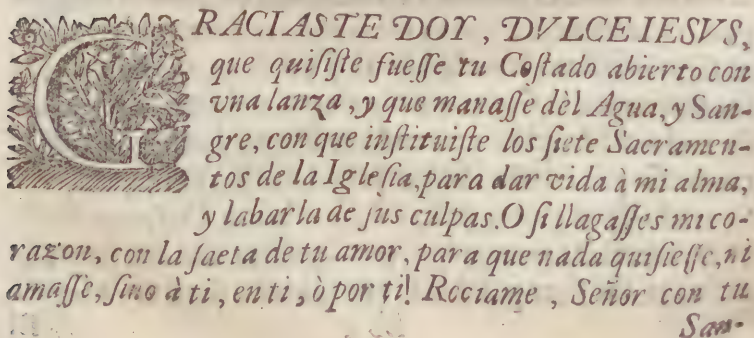 GRACIAS TE DOY, DVLCE IESVS,
que quiſiſte fueſſe tu Coſtado abierto con
vna lanza, y que manaſſe dèl Agua, y San-
gre, con que inſtituiſte los ſiete Sacramen-
tos de la Igleſia, para dar vida à mi alma,
y labarla de ſus culpas. O ſi llagaſſes mi co-
razon, con la ſaeta de tu amor, para que nada quiſieſſe, ni
amaſſe, ſino à ti, en ti, ò por ti! Rociame, Señor con tu
San-